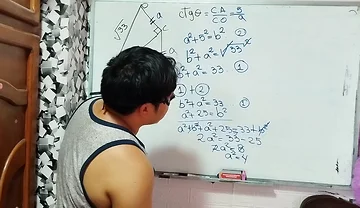 √33
a
ctgθ = CA/CO = 5/a
a²+5²=b² ②
b²+a²=√33²
b²+a²=33 ①
①+②
b²+a²=33 ①
a²+25=b²
a²+b²+a²+25=33+b²
2a²=33-25
2a²=8
a²=4